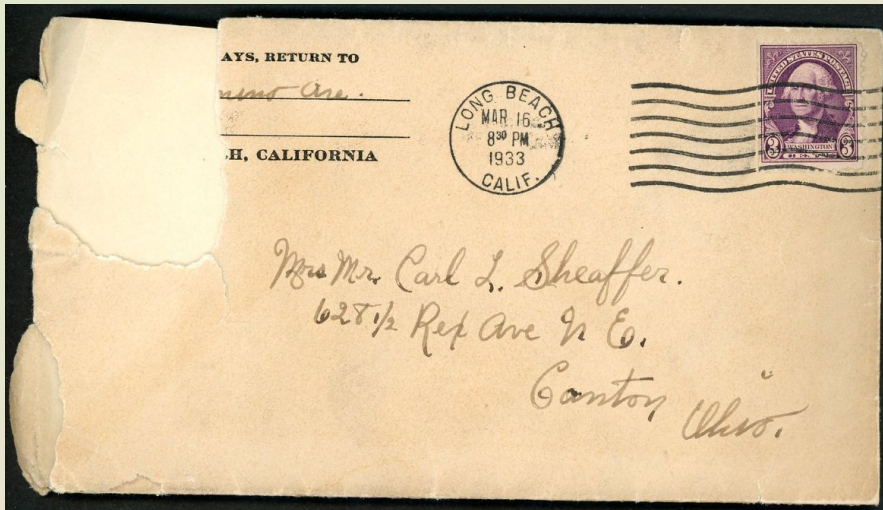 AYS, RETURN TO
Ave.
H, CALIFORNIA
LONG BEACH
MAR 16
8³⁰ PM
1933
CALIF.
UNITED STATES POSTAGE
3 WASHINGTON 3
Mrs Mr. Carl L. Sheaffer.
628 1/2 Rex Ave N E.
Canton
Ohio.